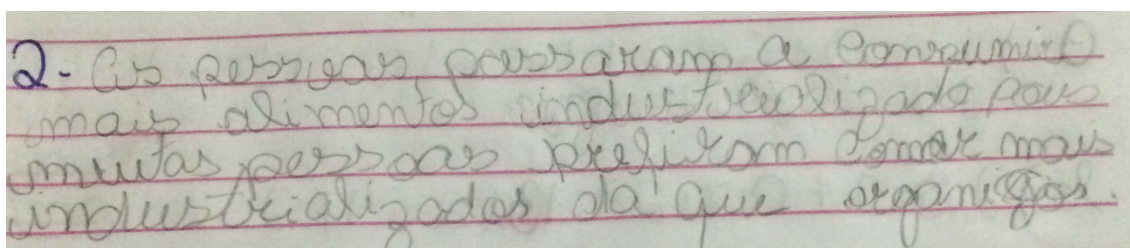 2- As pessoas passaram a consumir
mais alimentos industrializado pois
muitas pessoas prefiram comer mais
industrializados da que organicos.